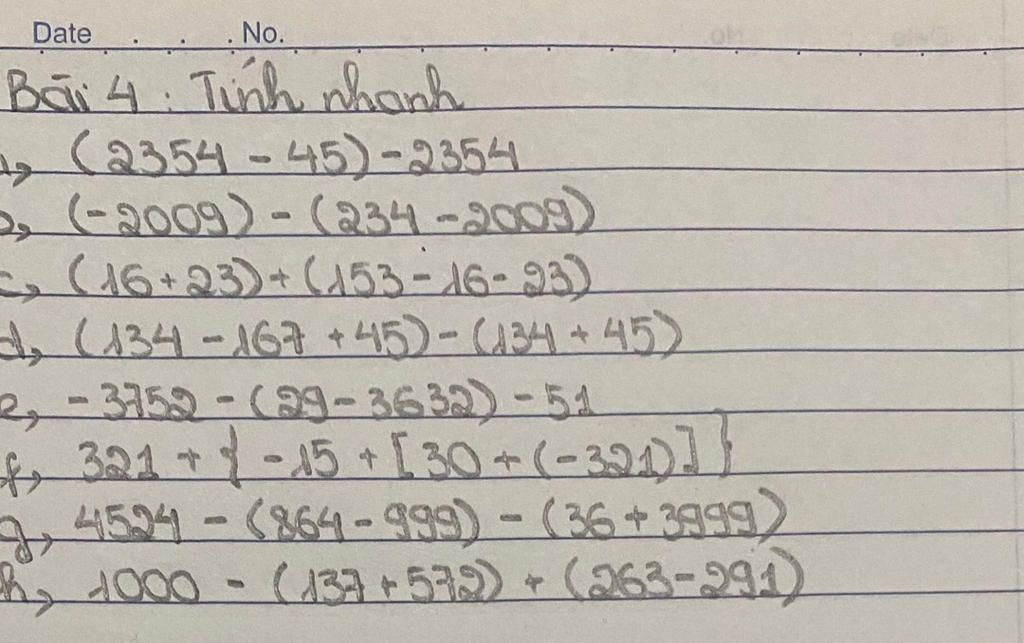 Date . . . . No.
Bài 4 : Tính nhanh
a, (2354 - 45) - 2354
b, (-2009) - (234 - 2009)
c, (16 + 23) + (153 - 16 - 23)
d, (134 - 167 + 45) - (134 + 45)
e, - 3752 - (29 - 3632) - 51
f, 321 + { -15 + [30 + (-321)] }
g, 4524 - (864 - 999) - (36 + 3999)
h, 1000 - (137 + 572) + (263 - 291)